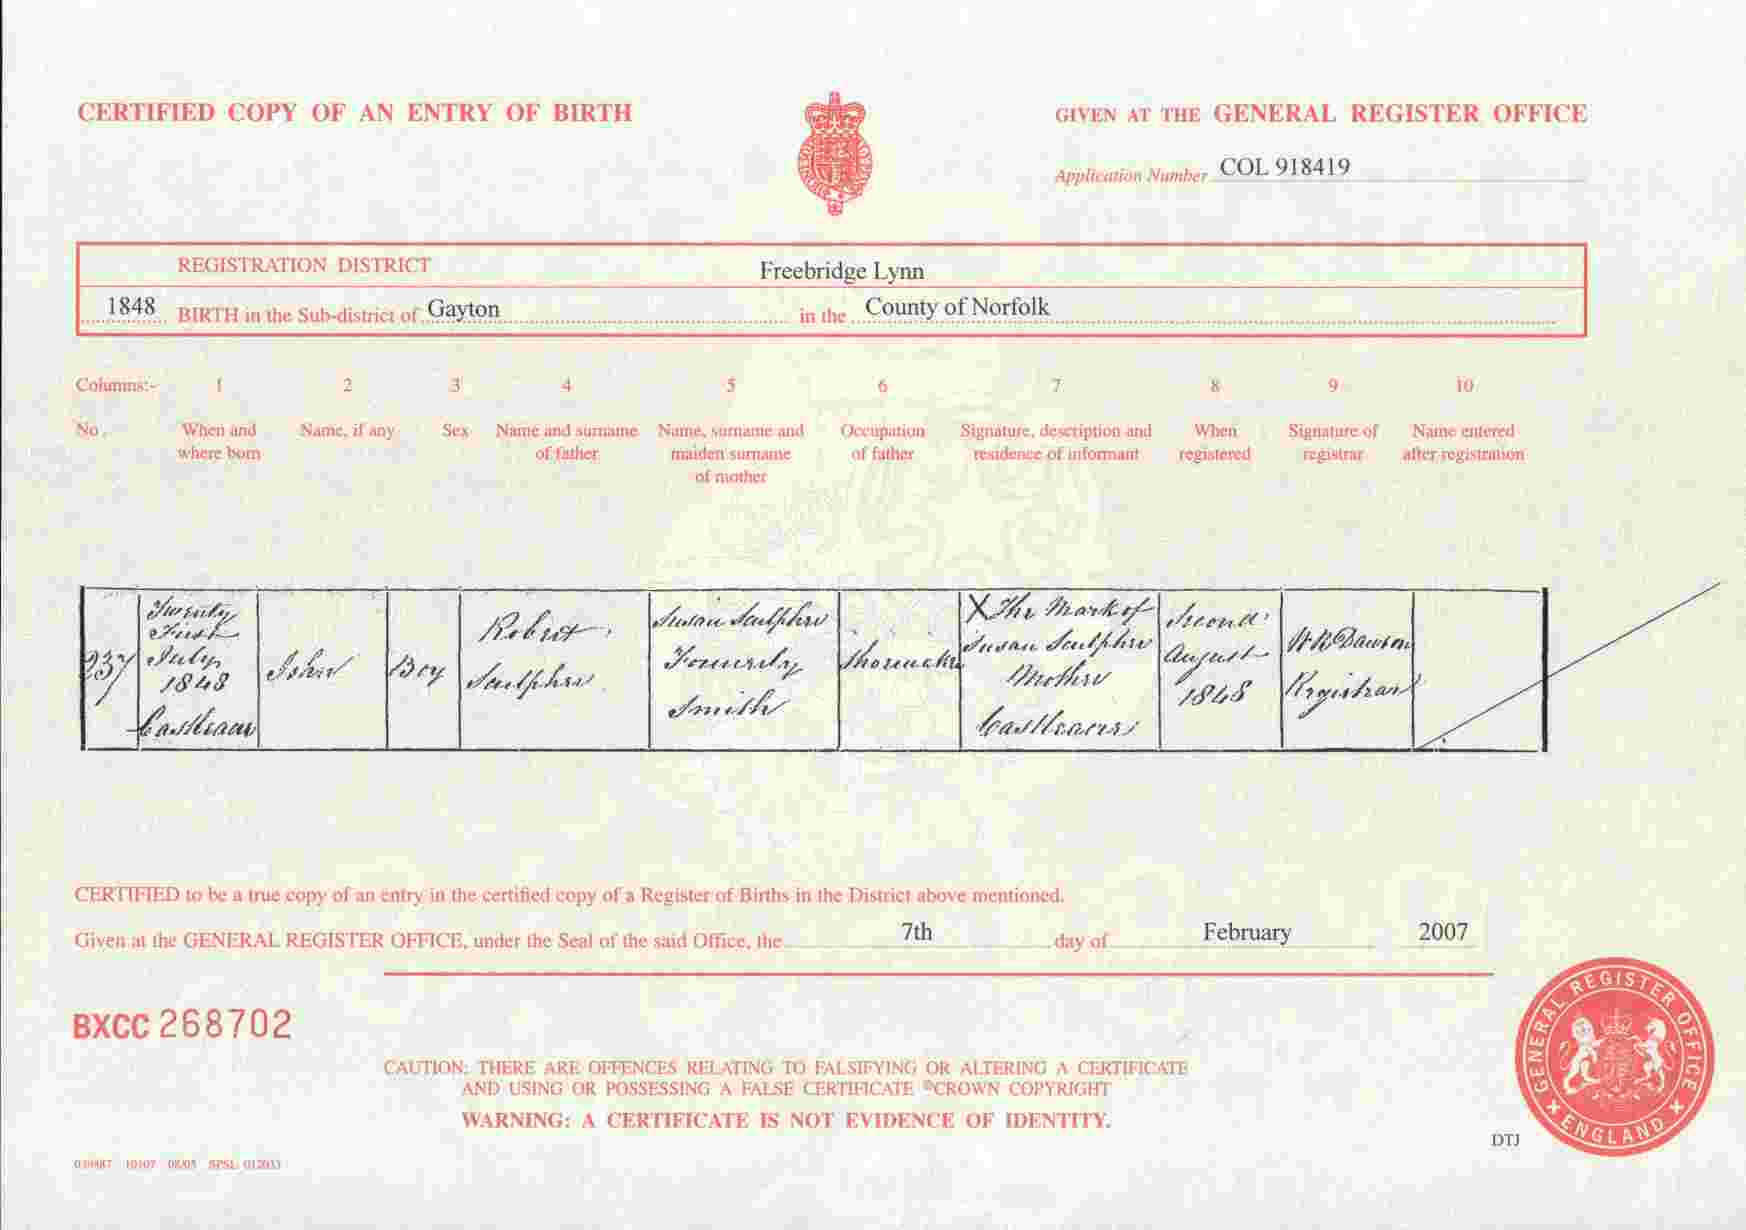 CERTIFIED COPY OF AN ENTRY OF BIRTH
GIVEN AT THE GENERAL REGISTER OFFICE
Application Number COL 918419
REGISTRATION DISTRICT Freebridge Lynn
1848 BIRTH in the Sub-district of Gayton in the County of Norfolk
Columns:- 1 2 3 4 5 6 7 8 9 10
No. When and where born
Name, if any
Sex
Name and surname of father
Name, surname and maiden surname of mother
Occupation of father
Signature, description and residence of informant
When registered
Signature of registrar
Name entered after registration
237
Twenty
First
July
1848
Castleacre
John
Boy
Robert
Sculpher
Susan Sculpher
Formerly
Smith
Shoemaker
X The Mark of
Susan Sculpher
Mother
Castleacre
Second
August
1848
W R Dawson
Registrar
CERTIFIED to be a true copy of an entry in the certified copy of a Register of Births in the District above mentioned.
Given at the GENERAL REGISTER OFFICE, under the Seal of the said Office, the 7th day of February 2007
BXCC 268702
CAUTION: THERE ARE OFFENCES RELATING TO FALSIFYING OR ALTERING A CERTIFICATE
AND USING OR POSSESSING A FALSE CERTIFICATE ©CROWN COPYRIGHT
WARNING: A CERTIFICATE IS NOT EVIDENCE OF IDENTITY.
GENERAL REGISTER OFFICE
ENGLAND
DTJ
10107 08/05 SPSL